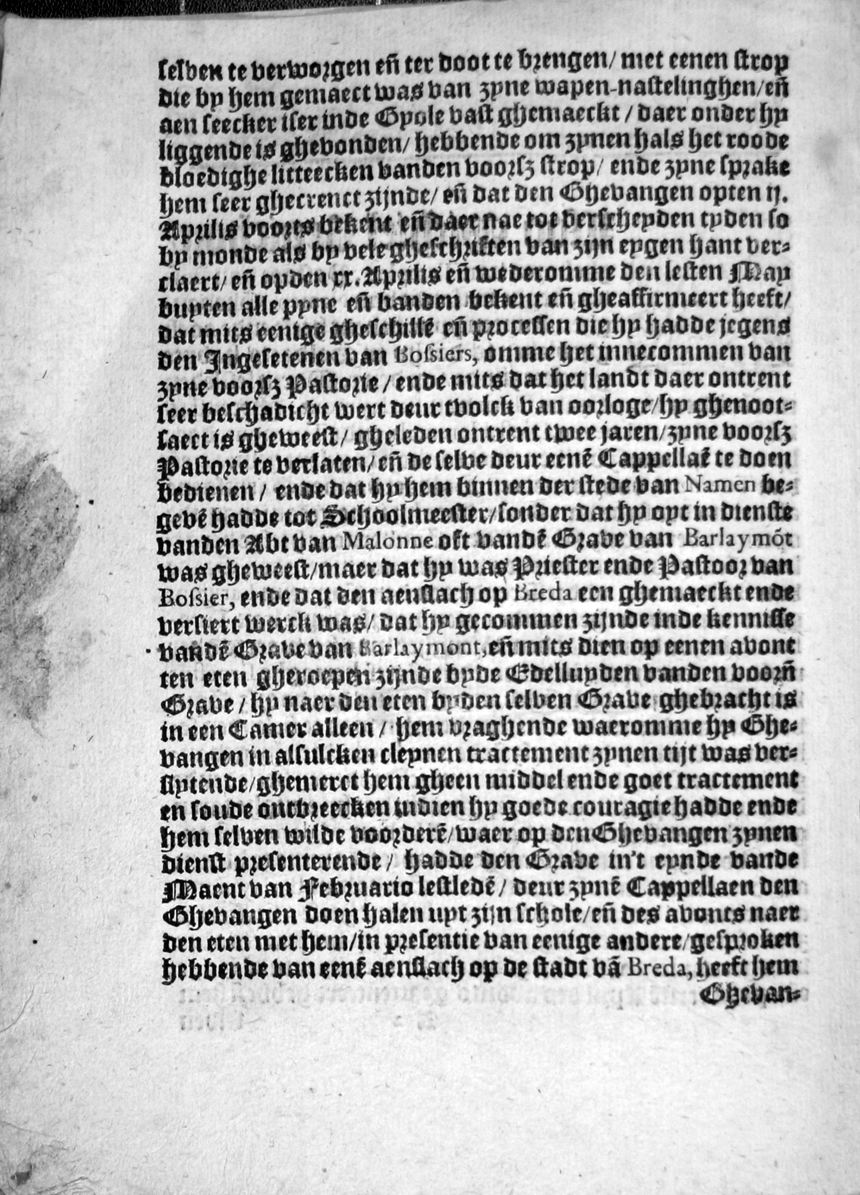 selven te verworgen eñ ter doot te brengen/ met eenen strop
die by hem gemaect was van zyne wapen-nastelinghen/eñ
aen seecker iser inde Gyole vast ghemaeckt / daer onder hy
liggende is ghevonden/ hebbende om zynen hals het roode
bloedighe litteecken vanden voorsz strop/ ende zyne sprake
hem seer ghecrenct zijnde/ eñ dat den Ghevangen opten ij.
Aprilis voorts bekent eñ daer nae tot verscheyden tyden so
by monde als by vele gheschriften van zijn eygen hant ver-
claert/ eñ opden xx. Aprilis eñ wederomme den lesten May
buyten alle pyne eñ banden bekent eñ gheaffirmeert heeft/
dat mits eenige gheschillē eñ processen die hy hadde jegens
den Ingesetenen van Bossiers, omme het innecommen van
zyne voorsz Pastorie / ende mits dat het landt daer ontrent
seer beschadicht wert deur tvolck van oorloge/ hy ghenoot-
saect is gheweest/ gheleden ontrent twee jaren/ zyne voorsz
Pastorie te verlaten/ eñ de selve deur eenē Cappellaē te doen
bedienen / ende dat hy hem binnen der stede van Namen be-
gevē hadde tot Schoolmeester/ sonder dat hy oyt in dienste
vanden Abt van Malonne oft vandē Grave van Barlaymōt
was gheweest/ maer dat hy was Priester ende Pastoor van
Bossier, ende dat den aenslach op Breda een ghemaeckt ende
versiert werck was/ dat hy gecommen zijnde inde kennisse
vandē Grave van Barlaymont, eñ mits dien op eenen avont
ten eten gheroepen zijnde byde Edelluyden vanden voorñ
Grave / hy naer den eten byden selven Grave ghebracht is
in een Camer alleen / hem vraghende waeromme hy Ghe-
vangen in alsulcken cleynen tractement zynen tijt was ver-
slytende/ ghemerct hem gheen middel ende goet tractement
en soude ontbreecken indien hy goede couragie hadde ende
hem selven wilde voorderē/ waer op den Ghevangen zynen
dienst presenterende / hadde den Grave in't eynde vande
Maent van Februario lestledē / deur zynē Cappellaen den
Ghevangen doen halen uyt zijn schole/ eñ des avonts naer
den eten met hem/ in presentie van eenige andere/ gesproken
hebbende van eenē aenslach op de stadt vā Breda, heeft hem
Ghevan-